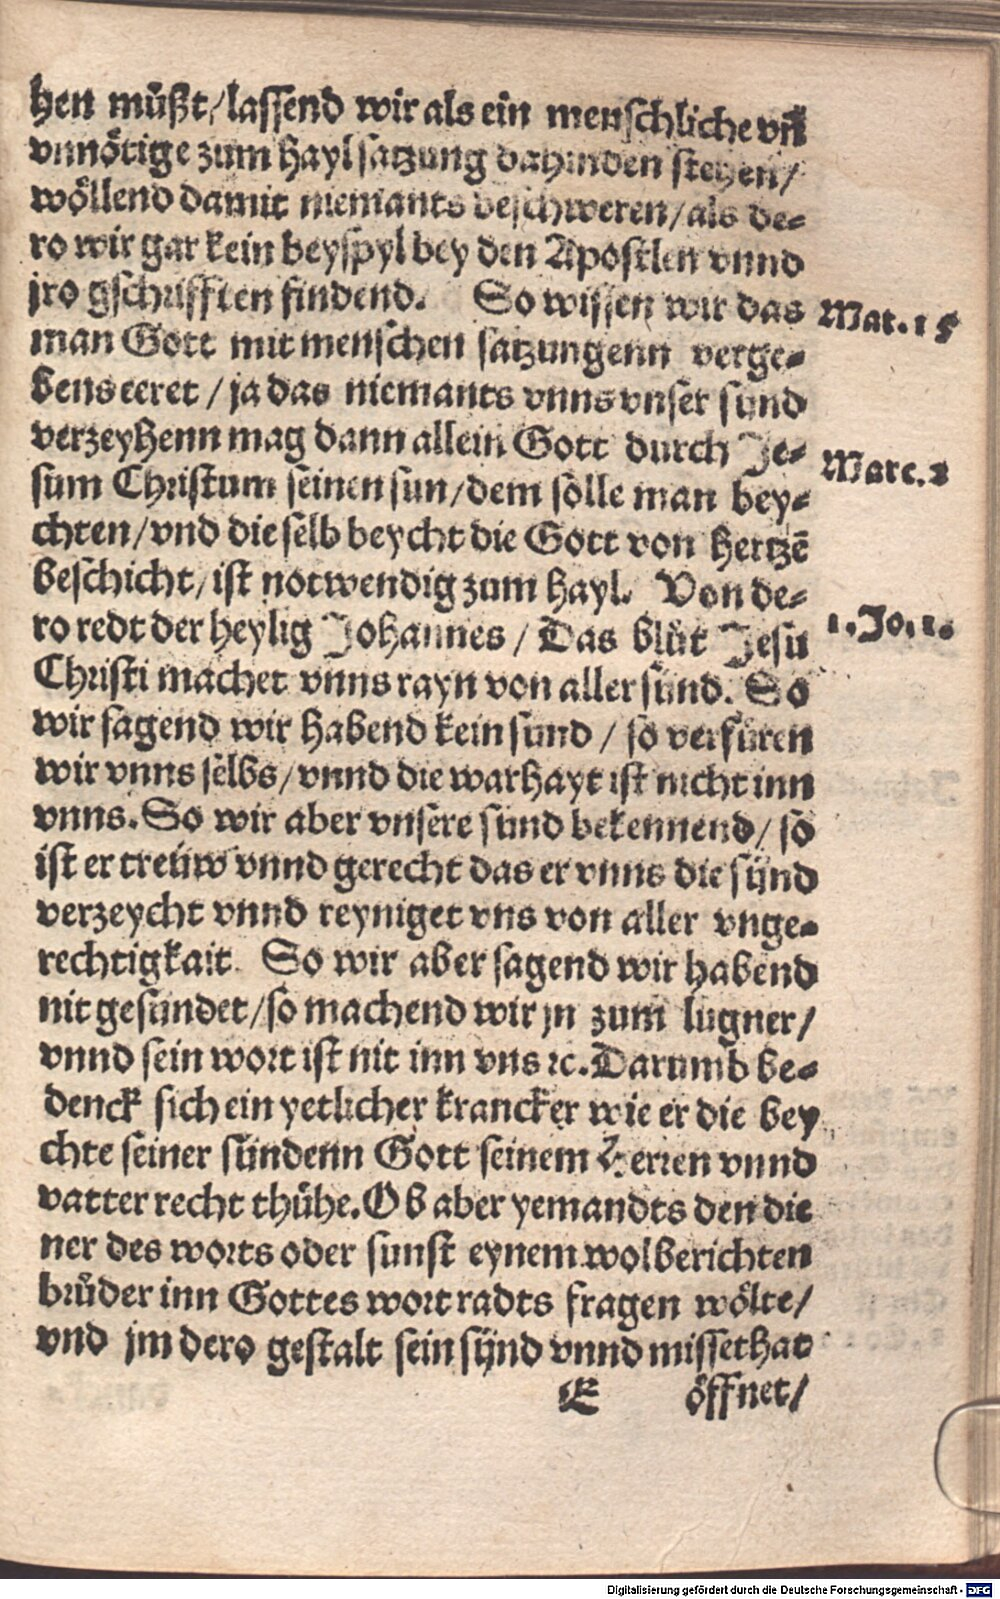 hen müßt/lassend wir als ein menschliche vñ
vnnötige zum Hayl satzung dahinden stehen/
wöllend damit niemants beschweren/als de-
ro wir gar kein beyspyl bey den Apostlen vnnd
jro gschrifften findend. So wissen wir das
Mat. 15
man Gott mit menschen satzungenn verge-
bens eeret / ja das niemants vnns vnser sünd
verzeyhenn mag dann allein Gott durch Je-
Marc. 2
sum Christum seinen sun/dem sölle man bey-
chten/vnd die selb beycht die Gott von Hertzē
beschicht/ist notwendig zum hayl. Von de-
ro redt der heylig Johannes / Das blůt Jesu
1. Jo. 1.
Christi machet vnns rayn von aller sünd. So
wir sagend wir habend kein sünd / so verfüren
wir vnns selbs/vnnd die warhayt ist nicht inn
vnns. So wir aber vnsere sünd bekennend/ so
ist er treüw vnnd gerecht das er vnns die sünd
verzeycht vnnd reyniget vns von aller vnge-
rechtigkait. So wir aber sagend wir habend
nit gesündet/so machend wir jn zum lugner/
vnnd sein wort ist nit inn vns ꝛc. Darumb be-
denck sich ein yetlicher krancker wie er die bey
chte seiner sündenn Gott seinem Herren vnnd
vatter recht thühe. Ob aber yemandts den die
ner des worts oder sunst eynem wolberichten
brůder inn Gottes wort radts fragen wölte/
vnd jm dero gestalt sein sünd vnnd missethat
E öffnet/
Digitalisierung gefördert durch die Deutsche Forschungsgemeinschaft - DFG